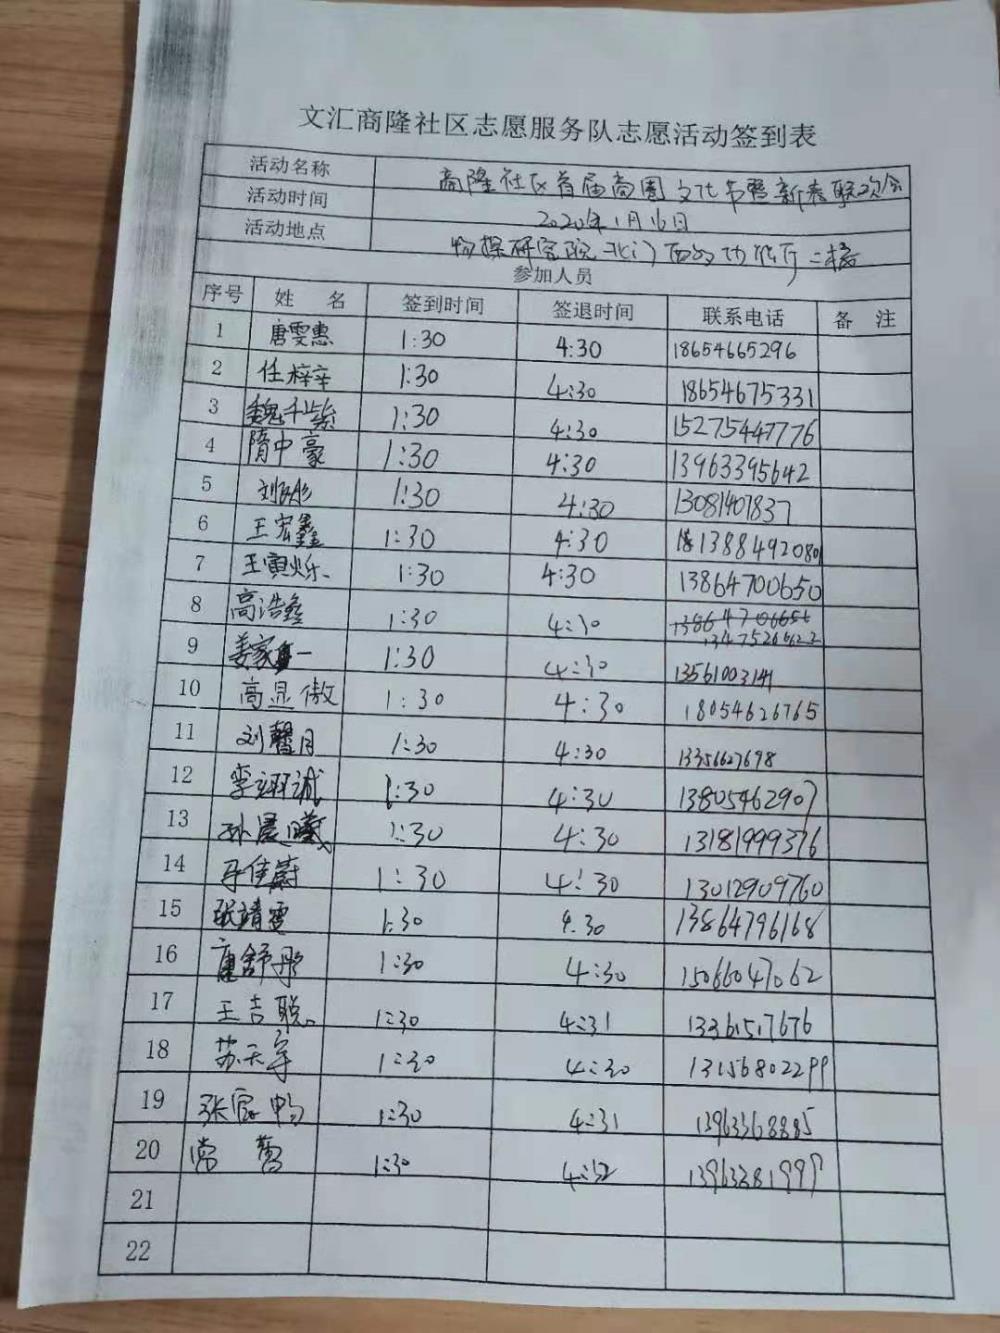 文汇商隆社区志愿服务队志愿活动签到表
活动名称 商隆社区首届商圈文化节暨新春联欢会
活动时间 2020年1月16日
活动地点 物探研究院北门西的功能厅二楼
参加人员
序号 姓 名 签到时间 签退时间 联系电话 备 注
1 唐雯惠 1:30 4:30 18654665296
2 任梓辛 1:30 4:30 18654675331
3 魏 1:30 4:30 15275447776
4 隋中豪 1:30 4:30 13963395642
5 刘 1:30 4:30 13081407837
6 王宏鑫 1:30 4:30 13884492080
7 王寅烁 1:30 4:30 13864700650
8 高浩鑫 1:30 4:30
9 姜家一 1:30 4:30 13561003141
10 高显傲 1:30 4:30 18054626765
11 刘馨月 1:30 4:30 1335627698
12 李翊诚 1:30 4:30 13805462907
13 孙晨曦 1:30 4:30 13181999376
14 佳蔚 1:30 4:30 13012909760
15 张靖雯 1:30 4.30 13864796168
16 唐舒彤 1:30 4:30 15066047062
17 王吉聪 1:30 4:31 13361517676
18 苏天宇 1:30 4:30 13156802299
19 张宸畅 1:30 4:31 13963368885
20 常 1:30 4:32 13963381999
21
22